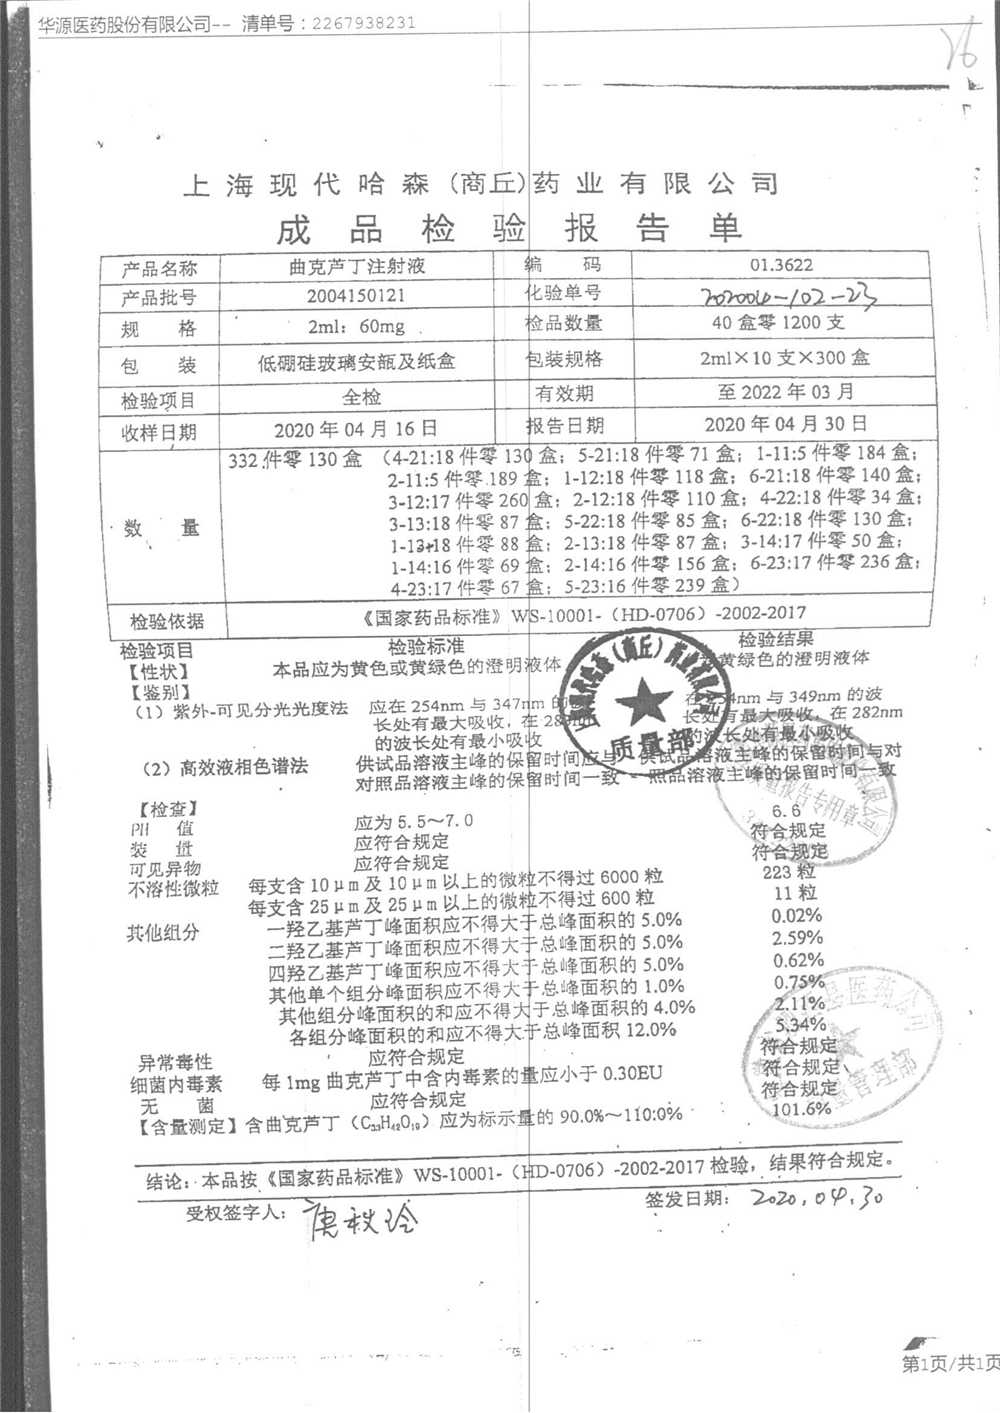 华源医药股份有限公司-- 清单号：2267938231
上海现代哈森(商丘)药业有限公司
成品检验报告单
产品名称 曲克芦丁注射液 编 码 01.3622
产品批号 2004150121 化验单号 202004-102-23
规 格 2ml：60mg 检品数量 40 盒零 1200 支
包 装 低硼硅玻璃安瓿及纸盒 包装规格 2ml×10 支×300 盒
检验项目 全检 有效期 至 2022 年 03 月
收样日期 2020 年 04 月 16 日 报告日期 2020 年 04 月 30 日
数 量 332 件零 130 盒 （4-21:18 件零 130 盒；5-21:18 件零 71 盒；1-11:5 件零 184 盒；
2-11:5 件零 189 盒；1-12:18 件零 118 盒；6-21:18 件零 140 盒；
3-12:17 件零 260 盒；2-12:18 件零 110 盒；4-22:18 件零 34 盒；
3-13:18 件零 87 盒；5-22:18 件零 85 盒；6-22:18 件零 130 盒；
1-13:18 件零 88 盒；2-13:18 件零 87 盒；3-14:17 件零 50 盒；
1-14:16 件零 69 盒；2-14:16 件零 156 盒；6-23:17 件零 236 盒；
4-23:17 件零 67 盒；5-23:16 件零 239 盒）
检验依据 《国家药品标准》WS-10001-（HD-0706）-2002-2017
检验项目 检验标准 检验结果
【性状】 本品应为黄色或黄绿色的澄明液体 黄绿色的澄明液体
【鉴别】
（1）紫外-可见分光光度法 应在 254nm 与 347nm 的 在 254nm 与 349nm 的波
长处有最大吸收，在 283nm 长处有最大吸收，在 282nm
的波长处有最小吸收 的波长处有最小吸收
（2）高效液相色谱法 供试品溶液主峰的保留时间应与 供试品溶液主峰的保留时间与对
对照品溶液主峰的保留时间一致 照品溶液主峰的保留时间一致
【检查】
PH 值 应为 5.5～7.0 6.6
装 量 应符合规定 符合规定
可见异物 应符合规定 符合规定
不溶性微粒 每支含 10μm 及 10μm 以上的微粒不得过 6000 粒 223 粒
每支含 25μm 及 25μm 以上的微粒不得过 600 粒 11 粒
其他组分 一羟乙基芦丁峰面积应不得大于总峰面积的 5.0% 0.02%
二羟乙基芦丁峰面积应不得大于总峰面积的 5.0% 2.59%
四羟乙基芦丁峰面积应不得大于总峰面积的 5.0% 0.62%
其他单个组分峰面积应不得大于总峰面积的 1.0% 0.75%
其他组分峰面积的和应不得大于总峰面积的 4.0% 2.11%
各组分峰面积的和应不得大于总峰面积 12.0% 5.34%
异常毒性 应符合规定 符合规定
细菌内毒素 每 1mg 曲克芦丁中含内毒素的量应小于 0.30EU 符合规定
无 菌 应符合规定 符合规定
【含量测定】含曲克芦丁（C₃₃H₄₂O₁₉）应为标示量的 90.0%～110.0% 101.6%
质量部
结论：本品按《国家药品标准》WS-10001-（HD-0706）-2002-2017 检验，结果符合规定。
受权签字人： 唐秋玲 签发日期： 2020.04.30
第1页/共1页